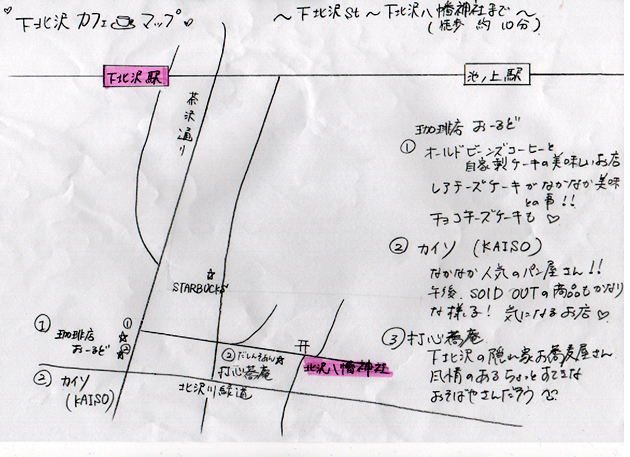 ♡下北沢 カフェ☕マップ♡
～下北沢St～下北沢八幡神社まで～
(徒歩 約10分)
下北沢駅
池ノ上駅
茶沢通り
珈琲店 おーるど
① オールドビーンズコーヒーと
自家製ケーキの美味しいお店
レアチーズケーキがなかなか美味
との事!!
チョコチーズケーキも♡
② カイソ (KAISO)
なかなか人気のパン屋さん!!
午後、SOLD OUTの商品もかなり
な様子! 気になるお店♡
③ 打心蕎庵
下北沢の隠れ家お蕎麦屋さん
風情のあるちょっとすてきな
おそばやさんだそう
☆
STARBUCKS
① 珈琲店
おーるど
①
☆
☆
②
② カイソ
(KAISO)
② だしんそあん☆
打心蕎庵
北沢八幡神社
北沢川緑道